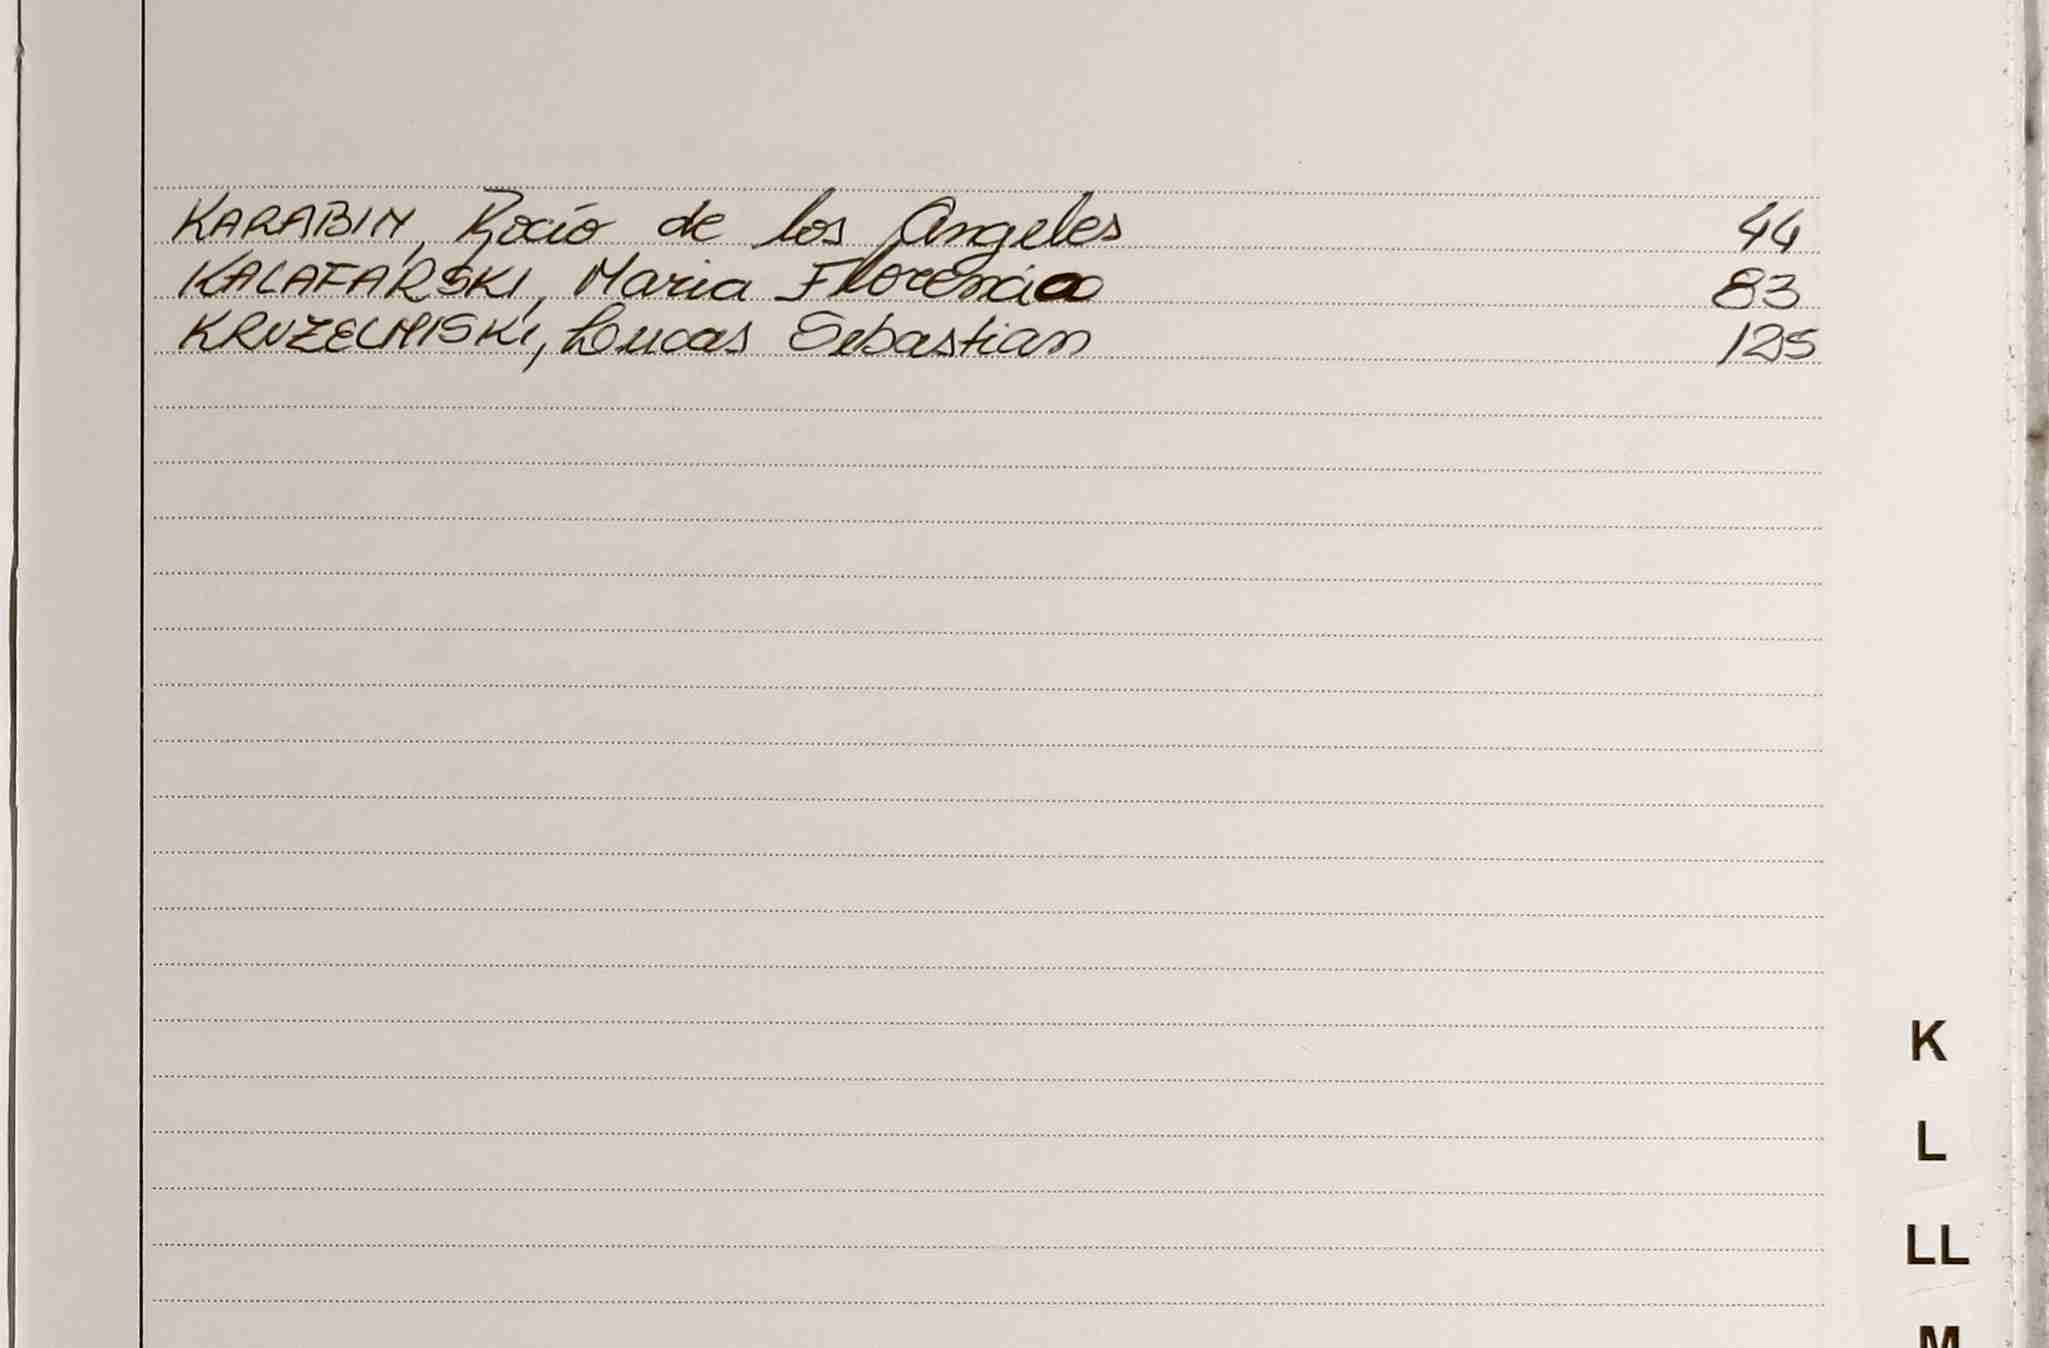 KARABIN, Rocío de los Angeles 44
KALAFARSKI, Maria Florencia 83
KRUZELNISKI, Lucas Sebastian 125
K
L
LL
M